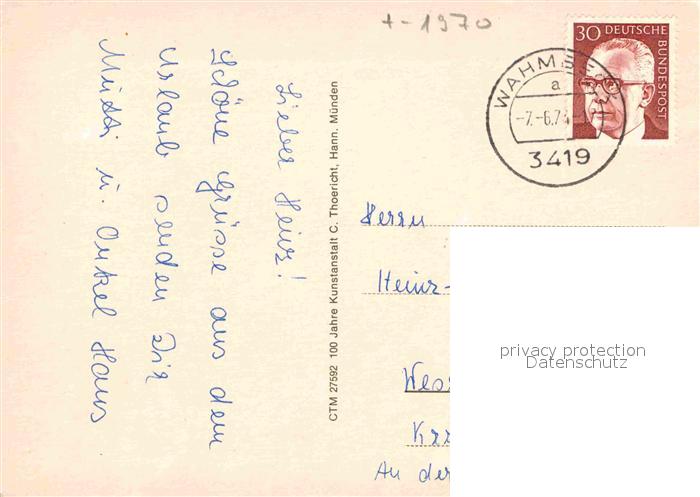 +-1970
30 DEUTSCHE
BUNDESPOST
WAHMB
a
-7.-6.74
3419
Lieber Heinz!
Schöne Grüsse aus dem
Urlaub senden Dir
Mutti u. Onkel Hans
CTM 27592 100 Jahre Kunstanstalt C. Thoericht, Hann. Münden
Herrn
Heinz-
Wes
An der
privacy protection
Datenschutz